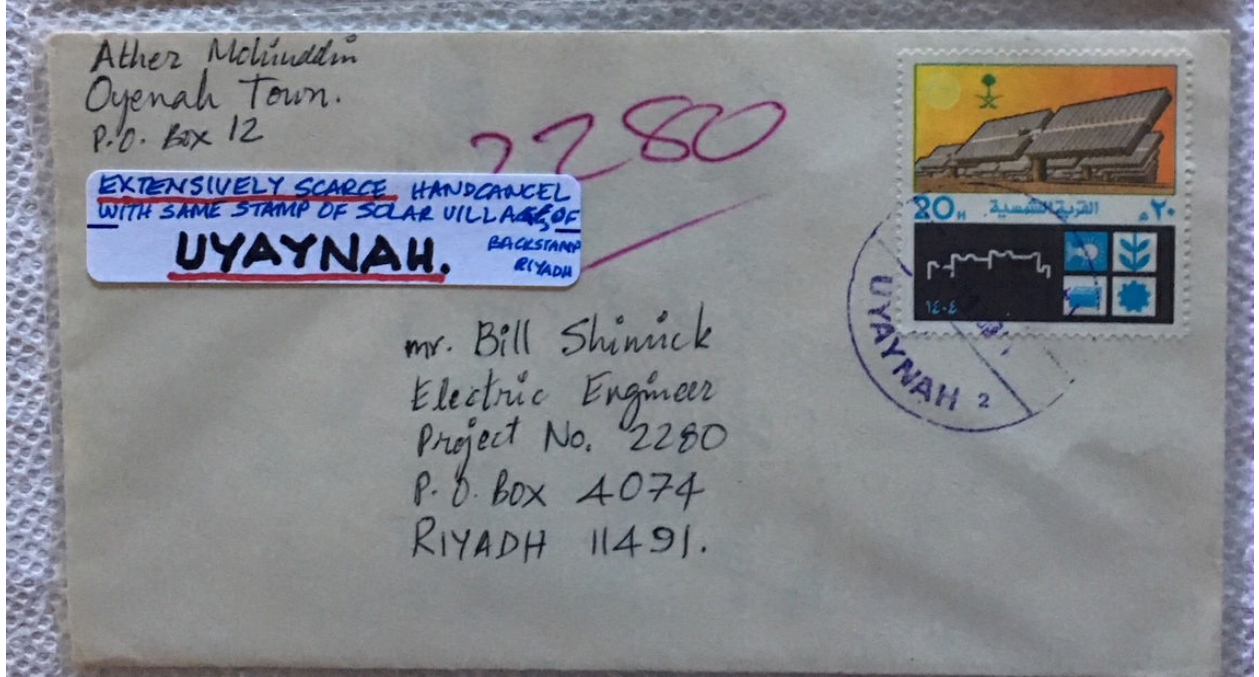 Ather Mohiuddin
Oyenah Town.
P.O. Box 12
2280
EXTENSIVELY SCARCE HANDCANCEL
WITH SAME STAMP OF SOLAR VILLAGE, OF
UYAYNAH.
BACKSTAMP
RIYADH
20 H القرية الشمسية ٢٠ هـ
١٤٠٤
UYAYNAH 2
mr. Bill Shinnick
Electric Engineer
Project No. 2280
P.O. Box 4074
RIYADH 11491.